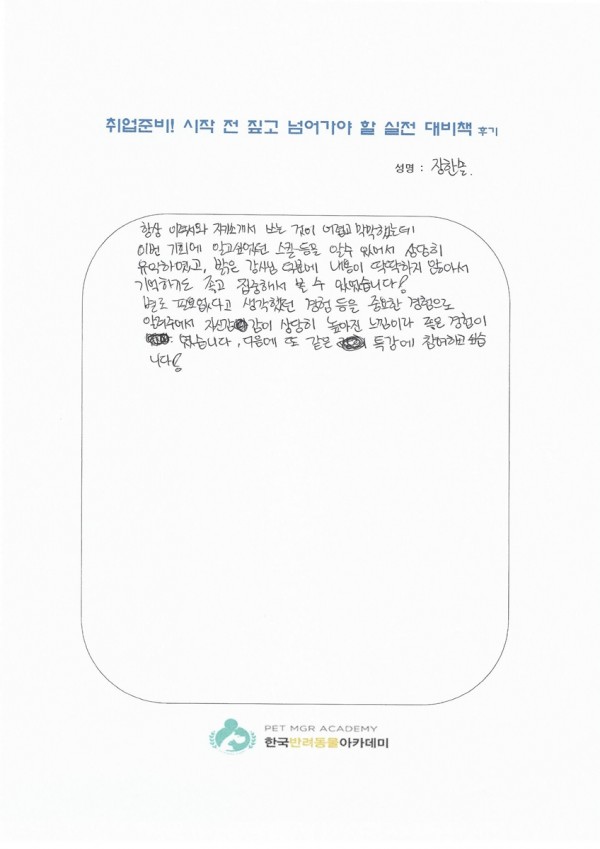 취업준비! 시작 전 짚고 넘어가야 할 실전 대비책 후기
성명 : 장한솔
항상 이력서와 자기소개서 쓰는 것이 어렵고 막막했는데
이번 기회에 알고싶었던 스킬 등을 알수 있어서 상당히
유익하였고, 밝은 강사님 덕분에 내용이 딱딱하지 않아서
기억하기도 좋고 집중해서 볼 수 있었습니다!
별로 필요없다고 생각했던 경험 등을 중요한 경험으로
알려주셔서 자신감이 상당히 높아진 느낌이라 좋은 경험이
였습니다, 다음에 또 같은 특강에 참여하고 싶습
니다!
PET MGR ACADEMY
한국반려동물아카데미